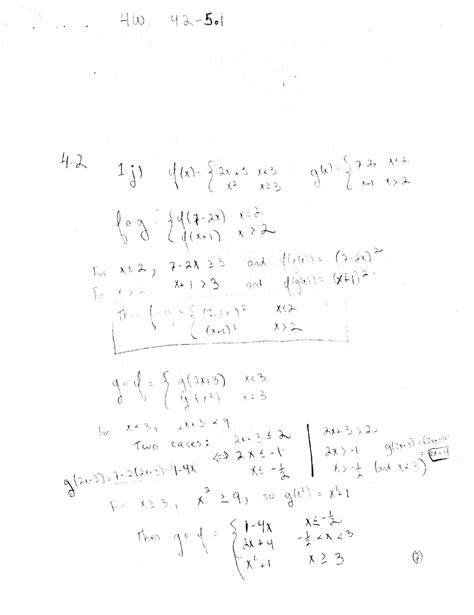 HW. 42-5.1
4.2 1j) f(x)= { 2x+3 x<3 g(x)= { 7-2x x≤2
x² x≥3 x+1 x>2
fog = { f(7-2x) x≤2
f(x+1) x>2
For x≤2, 7-2x ≥3 and f(g(x)) = (7-2x)²
For x>2 x+1>3 and f(g(x)) = (x+1)²
Then fog = { (7-2x)² x≤2
(x+1)² x>2
gof = { g(2x+3) x<3
g(x²) x≥3
For x<3, 2x+3<9
Two cases: 2x+3≤2 | 2x+3>2
⇔ 2x≤-1 | 2x>-1
x≤-1/2 | x>-1/2 (and x<3)
g(2x+3)=7-2(2x+3)=1-4x
For x≥3, x²≥9, so g(x²)=x²+1
Then gof = { 1-4x x≤-1/2
2x+4 -1/2<x<3
x²+1 x≥3